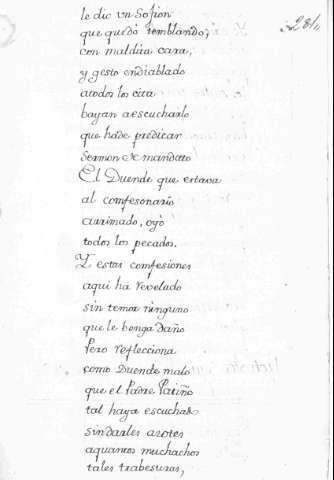 le dio vn Sofion
que quedó temblando,
con maldita cara,
y gesto endiablado
atodos los cita
bayan aescucharlo
que háde predicar
Sermon de mandato
El Duende que estava
al comfesonario
arrimado, oyó
todos los pecados.
Y estas comfesiones
aqui há revelado
sin temor ninguno
que le benga daño
Pero reflecciona
como Duende malo
que el Padre Patiño
tal haya escuchado
sindarles azotes
aquantos muchachos
tales trabesuras,